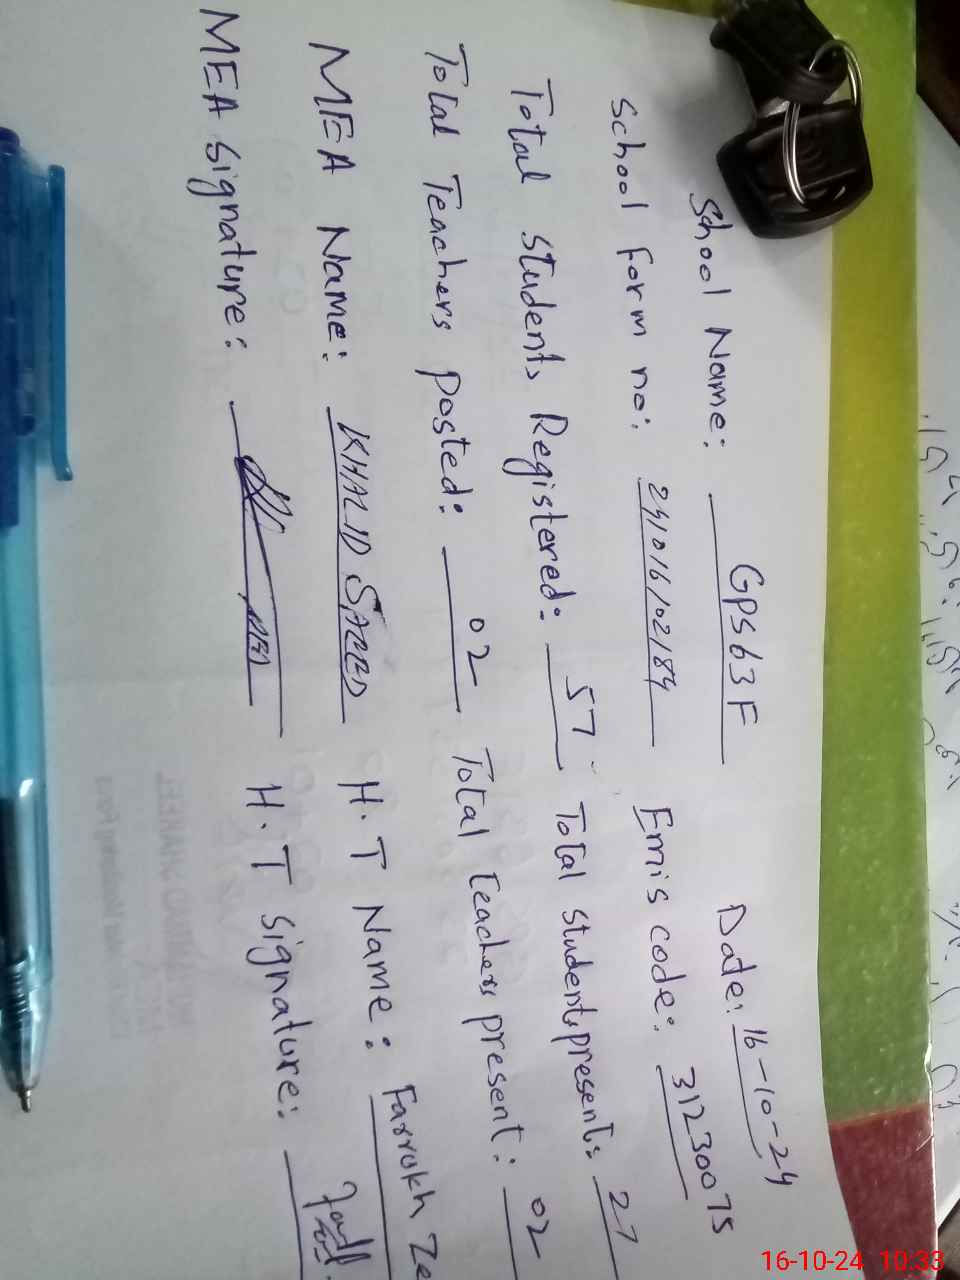 School Name: GPS 63 F Date: 16-10-24
School form no: 241016102184 Emis code: 31230075
Total students Registered: 57 Total students present: 27
Total Teachers posted: 02 Total teachers present: 02
MEA Name: KHALID SAEED H.T Name: Farrukh Ze
MEA signature: H.T signature:
16-10-24 10:33